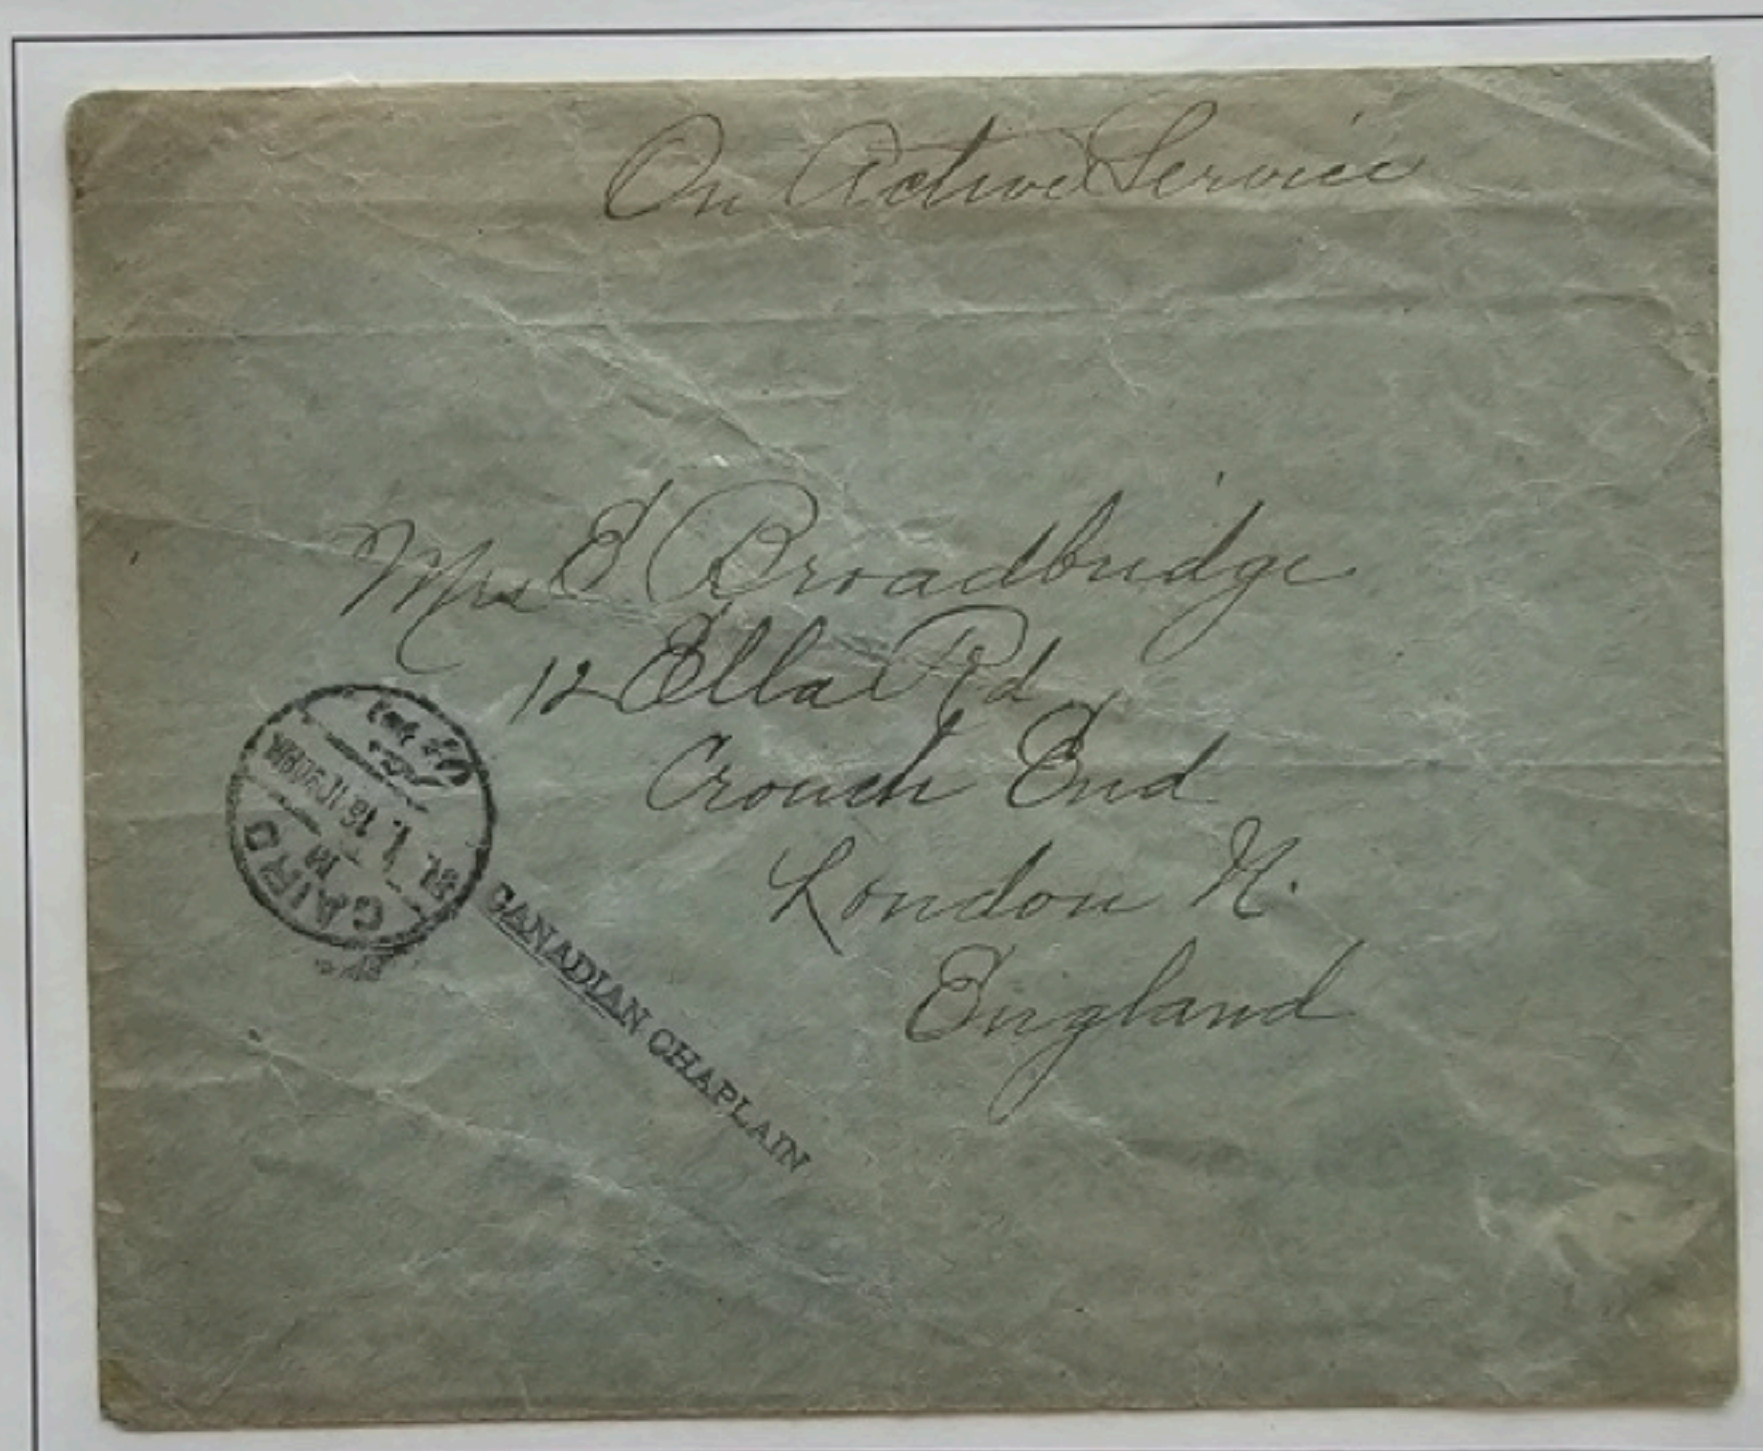 On Active Service
Mrs E Broadbridge
12 Ella Rd
Crouch End
London N.
England
CAIRO
M
CANADIAN CHAPLAIN